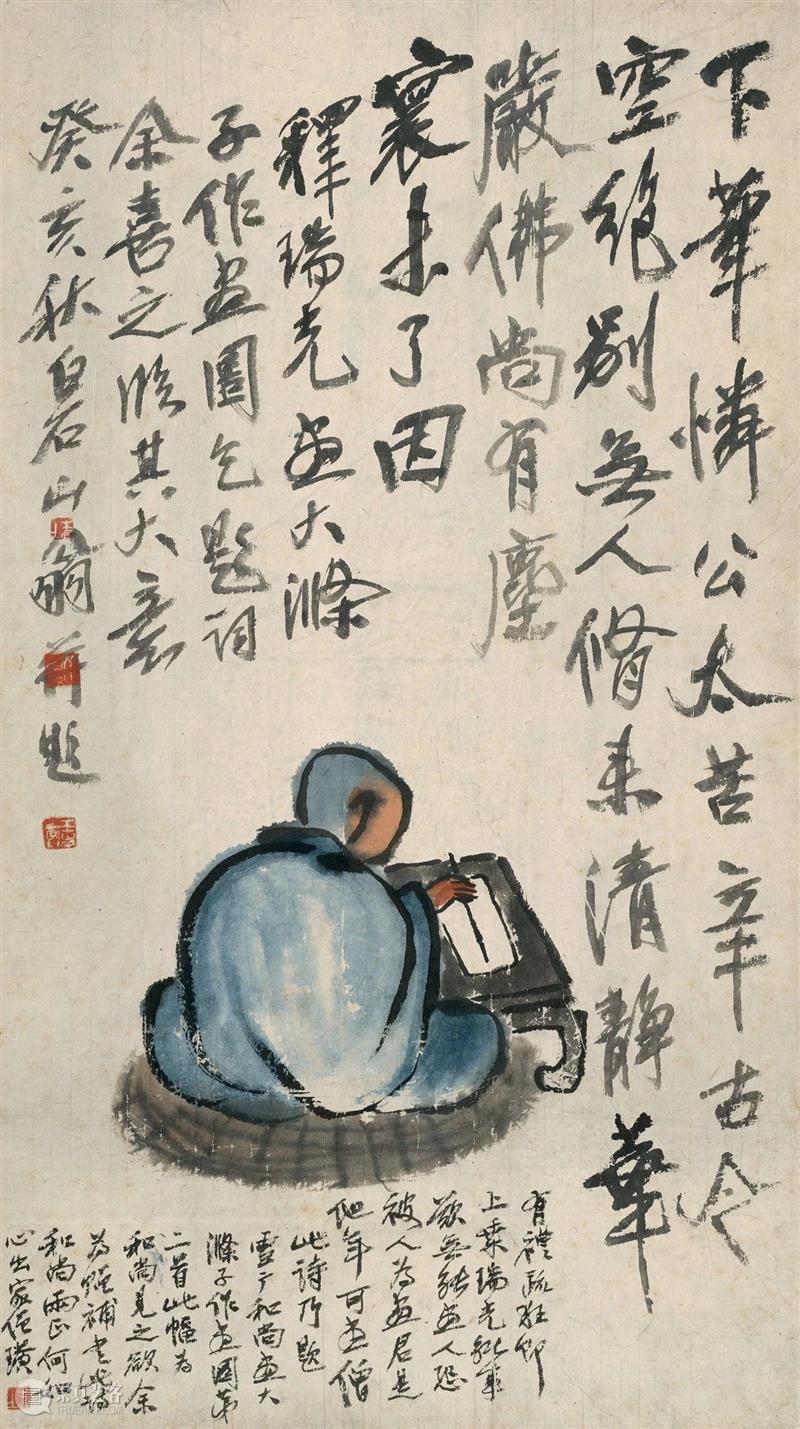 下筆憐公太苦辛古今
空絕別無人脩來清靜華
嚴佛尚有塵
寰未了因
釋瑞光畫大滌
子作畫圖乞題詞
余喜之臨其大意
癸亥秋白石山翁并題
有禮疏狂即
上乘瑞光能事
欲無能畫人恐
被人為畫君是
他年可畫僧
此詩乃題
雪广和尚畫大
滌子作畫圖第
二首此幅為
和尚見之欲余
為贈補書此詩
和尚兩正何如
心出家僧璜